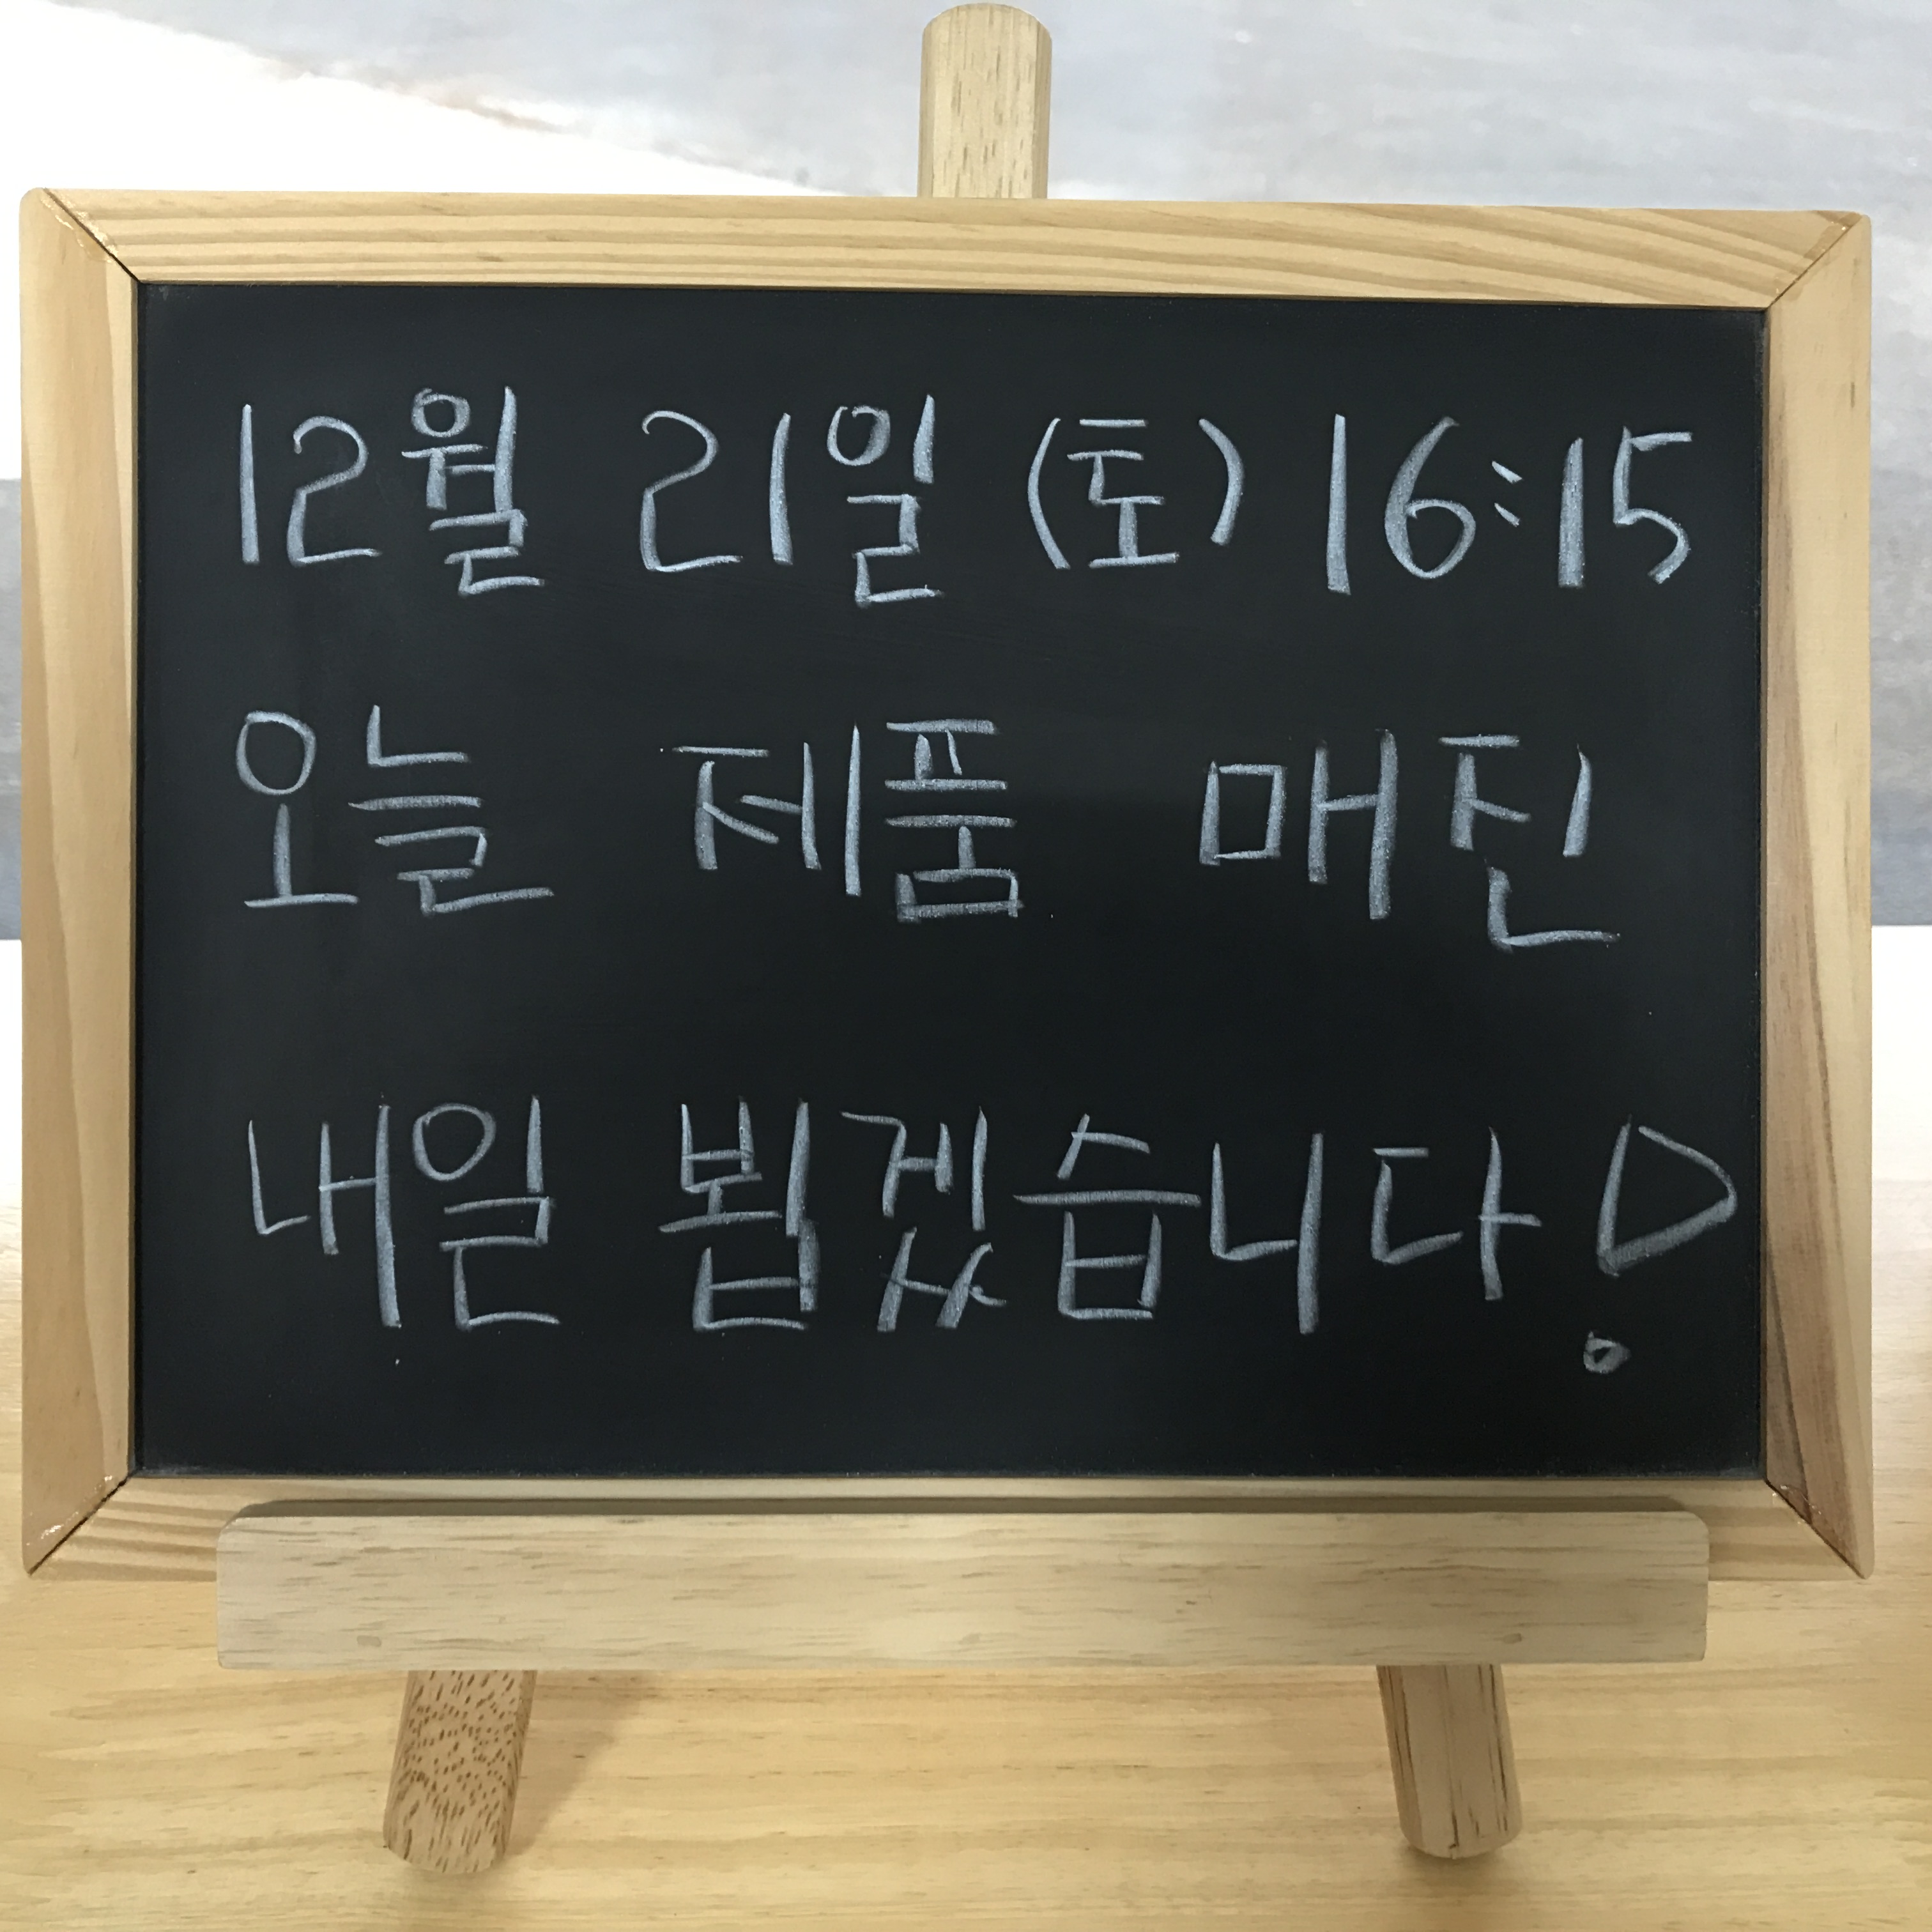 12월 21일 (토) 16:15
오늘 제품 매진
내일 뵙겠습니다!